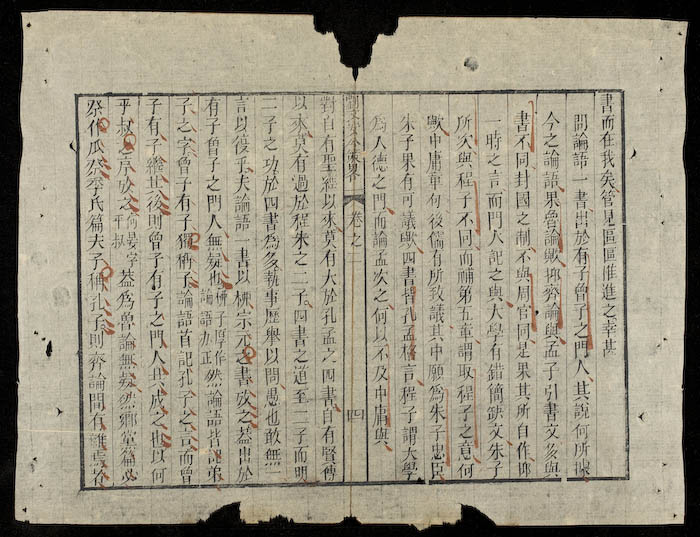 書而在我矣管見區區推進之幸甚
問論語一書出於有子曾子之門人其說何所據
今之論語果魯論歟抑齊論與孟子引書文多與
書不同封國之制不與周官同是果其所自作抑
一時之言而門人記之與大學有錯簡缺文朱子
所次與程子不同而補第五章謂取程子之意何
歟中庸章句後儒有所致議其中願為朱子忠臣
朱子果有可議歟四書皆孔孟格言程子謂大學
為入德之門而論孟次之何以不及中庸與
卷之二
四
對自有聖經以來莫有大於孔孟之四書自有賢傳
以來莫有過於程朱之二子四書之道至二子而明
二子之功於四書為多執事歷舉以問愚也敢無一
言以復乎夫論語一書以柳宗元之書攷之蓋出於
有子曾子之門人無疑也 然論語皆記弟
子之字曾子有子獨稱子論語首記孔子之言而曾
子有子繼其後則曾子有子之門人共成之也以何
平叔之序攷之何晏字平叔蓋為魯論無疑然鄉黨篇必
祭作瓜祭季氏篇夫子稱孔子則齊論間有雜焉者